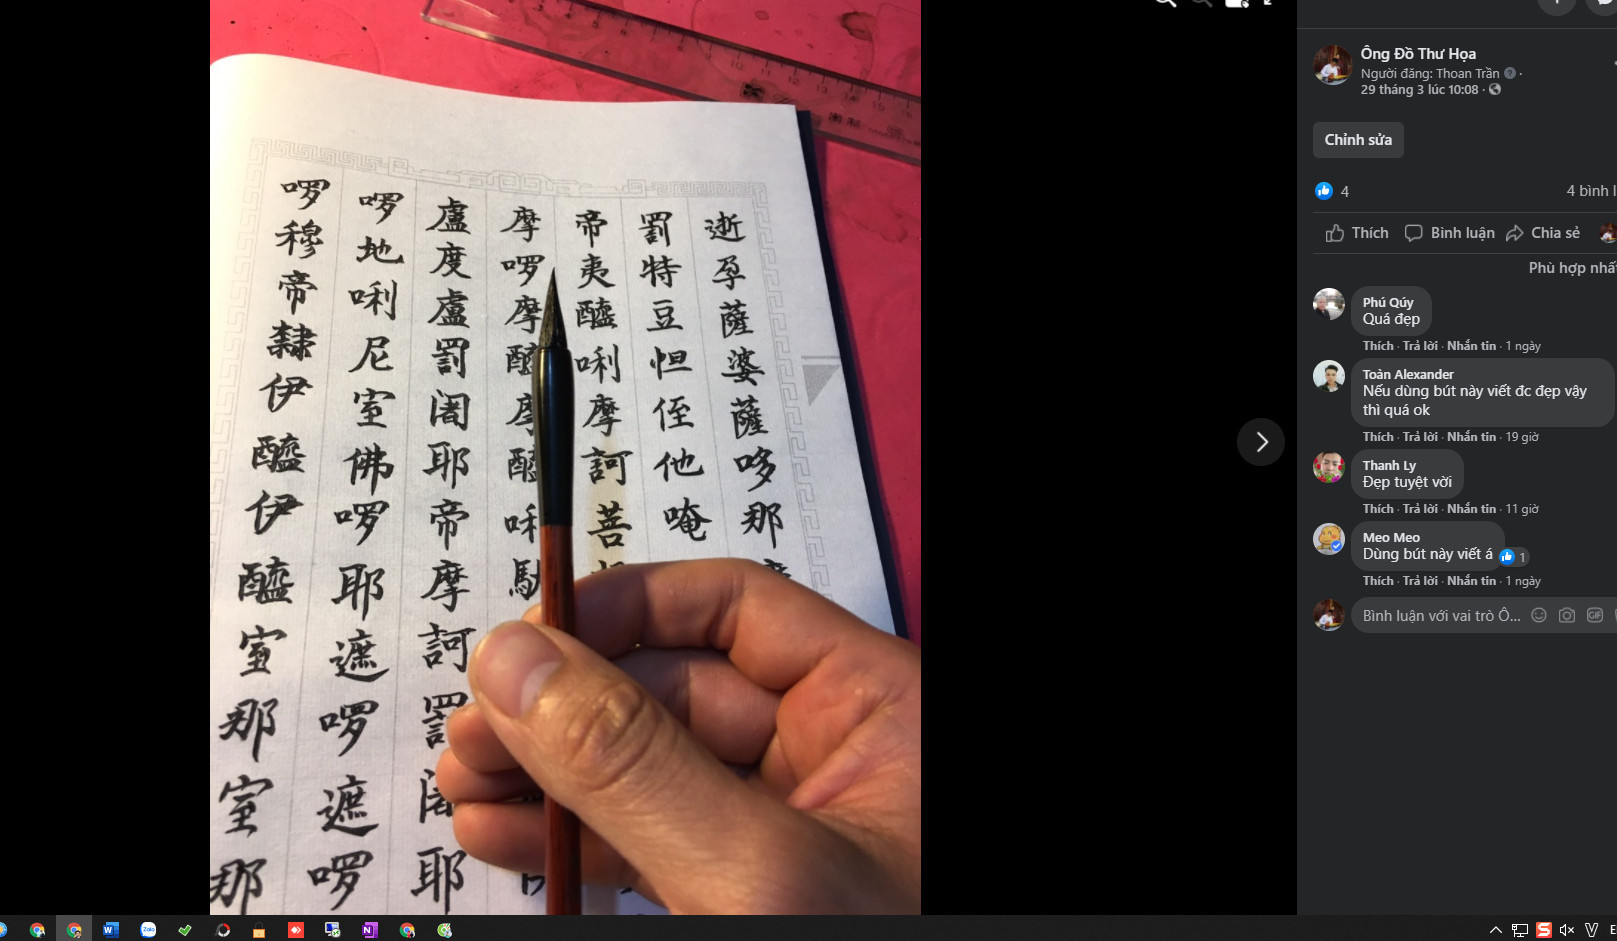 逝孕薩婆薩哆那
罰特豆怛侄他唵
帝夷醯唎摩訶菩
摩啰摩
盧度盧罰闍耶帝摩訶罰闍耶
啰地唎尼室佛啰耶遮啰遮啰
啰穆帝隸伊醯伊醯室那室那
Ông Đồ Thư Họa
Người đăng: Thoan Trần ·
29 tháng 3 lúc 10:08 ·
Chỉnh sửa
4
4 bình l
Thích Bình luận Chia sẻ
Phù hợp nhấ
Phú Qúy
Quá đẹp
Thích · Trả lời · Nhắn tin · 1 ngày
Toàn Alexander
Nếu dùng bút này viết đc đẹp vậy
thì quá ok
Thích · Trả lời · Nhắn tin · 19 giờ
Thanh Ly
Đẹp tuyệt vời
Thích · Trả lời · Nhắn tin · 11 giờ
Meo Meo
Dùng bút này viết á
1
Thích · Trả lời · Nhắn tin · 1 ngày
Bình luận với vai trò Ô...
GIF